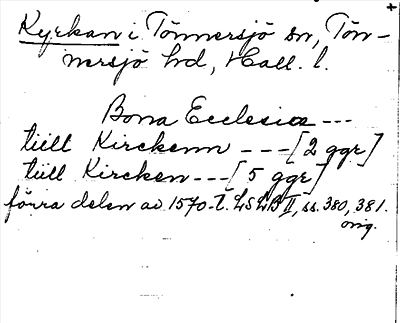 Kyrkan i Tönnersjö sn, Tön-
nersjö hd, Hall. l.
Bona Ecclesia ---
tiill Kirckenn --- [2 ggr]
tiill Kircken --- [5 ggr]
förra delen av 1570-t. LSLB II, ss. 380, 381.
orig.